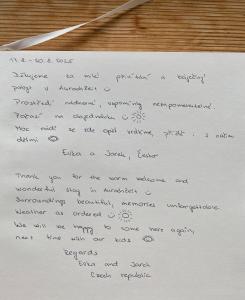 17.8. - 20.8. 2025
Děkujeme za milé přivítání a báječný
pobyt v
Prostředí nádherné, vzpomínky nezapomenutelné.
Počasí na objednávku
Moc rádi se zde opět vrátíme, příště i s našimi
dětmi
Evka a Jarek, Česko
Thank you for the warm welcome and
wonderful stay in
Surroundings beautiful, memories unforgettable.
Weather as ordered
We will be happy to come here again,
next time with our kids
Regards
Evka and Jarek
Czech republic